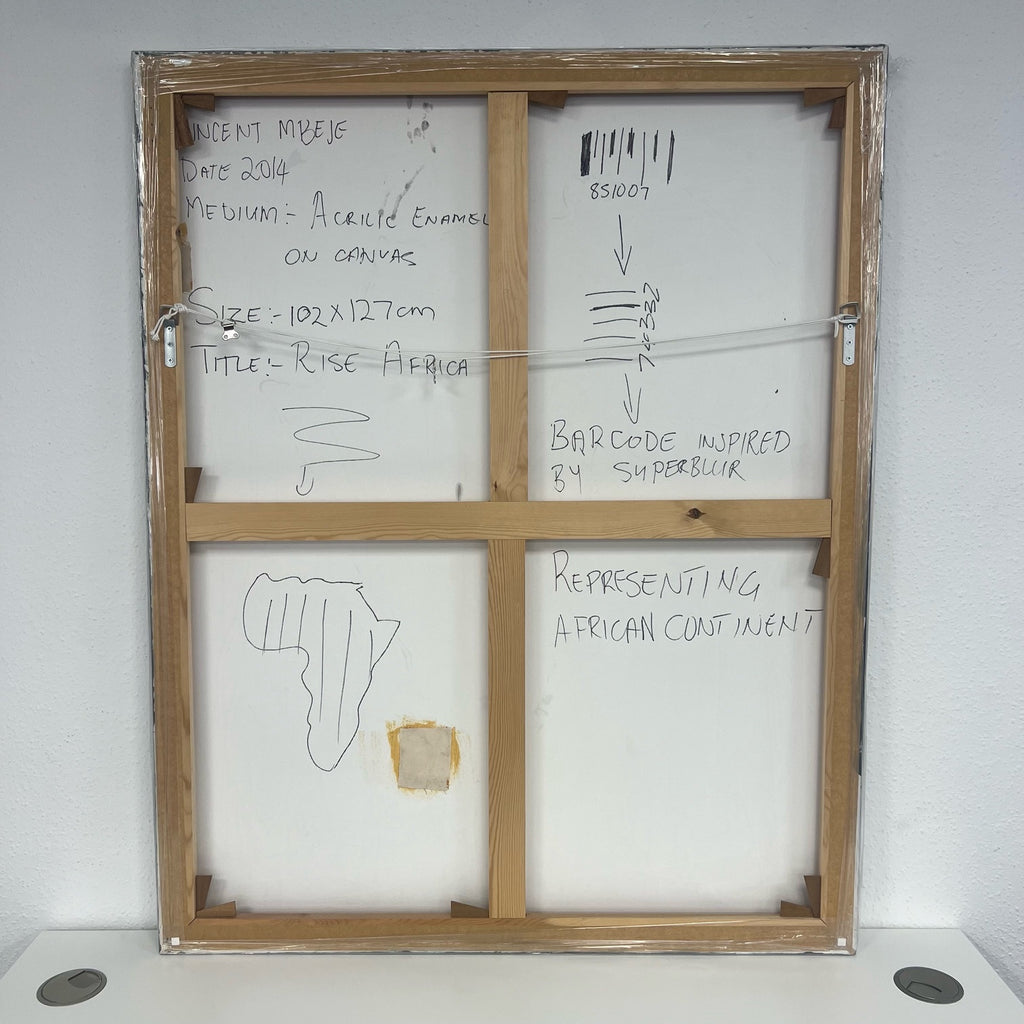 INCENT MBEJE
DATE 2014
MEDIUM:- ACRILIC ENAMEL
ON CANVAS
SIZE:- 102X127cm
TITLE:- RISE AFRICA
851007
BARCODE INSPIRED
BY SUPERBLUR
REPRESENTING
AFRICAN CONTINENT